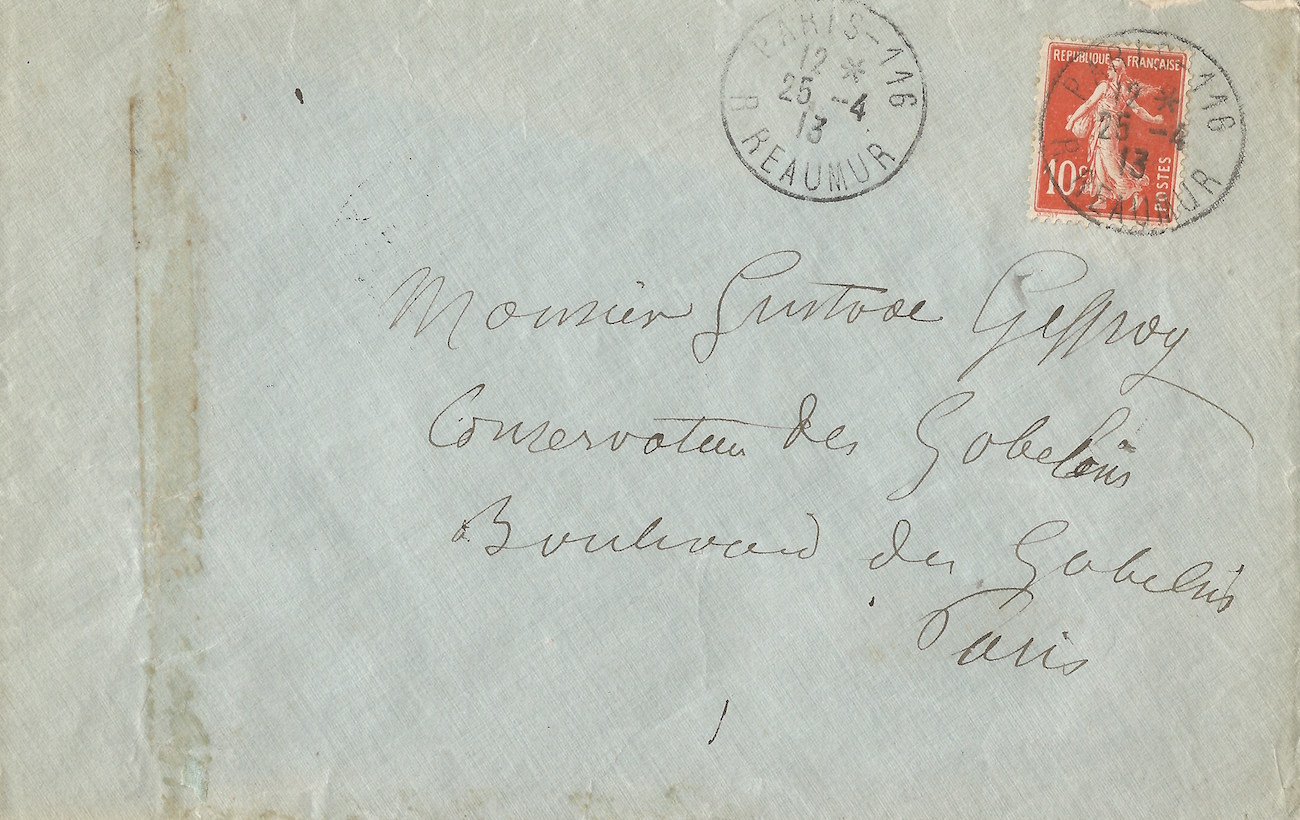 PARIS-116
12 *
25 -4
13
R REAUMUR
REPUBLIQUE FRANÇAISE
10c
POSTES
PARIS-116
12 *
25 -4
13
R REAUMUR
Monsieur Gustave Geffroy
Conservateur des Gobelins
Boulevard des Gobelins
Paris